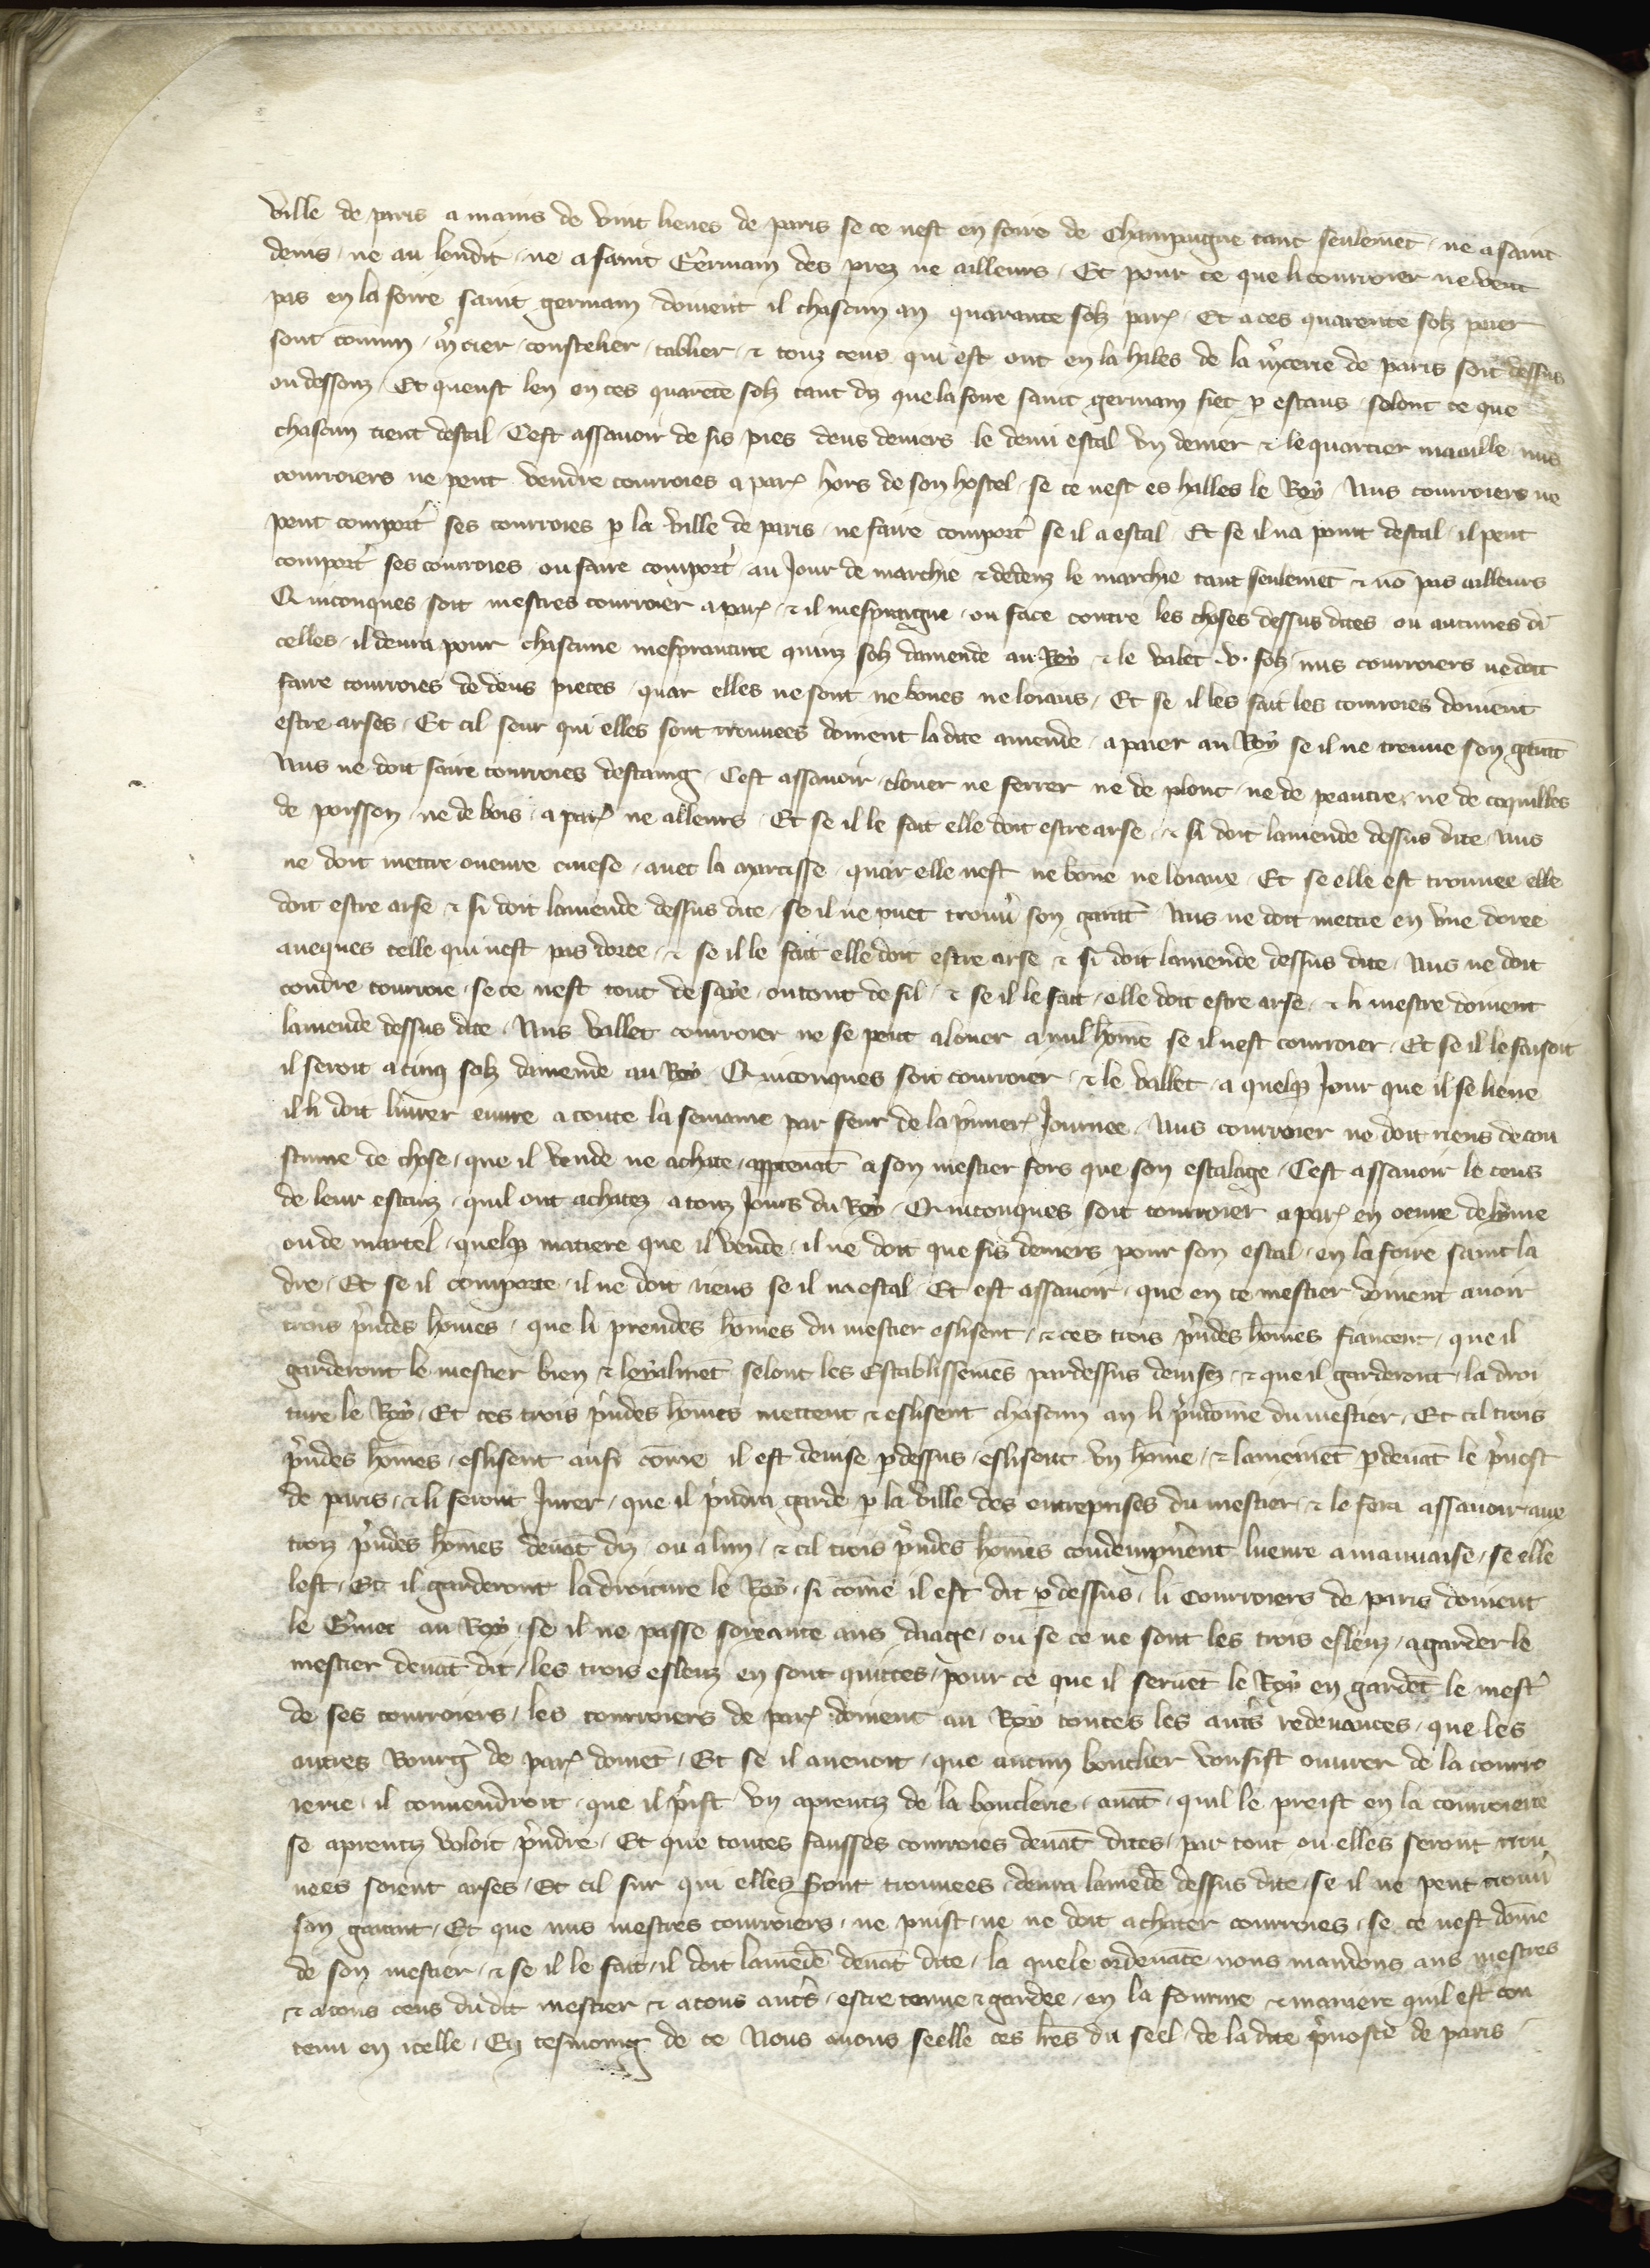 ville de paris a mains de vint lieues de paris se ce nest en foire de Champaigne tant seulemēt ne a saint
denis ne au lendit ne a saint Germain des prez ne ailleurs Et pour ce que li courroier ne vent
pas en la foire saint germain doiuent il chascun an quarante solz par Et a ces quarente solz paier
sont coumun mcier coustelier tablier & touz ceus qui est ont en la hales de la mcerie de paris soit dessus
ou dessouz Et queust len en ces quarēte solz tant dis que la foire saint germain siet p estaus selonc ce que
chascun tient destal Cest assauoir de sis pies deus deniers le demi estal vn denier & le quartier maaille nus
courroiers ne peut vendre courroies a par hors de son hostel se ce nest es halles le Roy Nus courroiers ne
peut comport ses courroies p la ville de paris ne faire comport se il a estal Et se il na point destal il peut
comport ses courroies ou faire comport au Jour de marchie & dedenz le marchie tant seulemēt & nō pas ailleurs
Quiconques soit mestres courroier a par & il mespraigne ou face contre les choses dessus dites ou aucunes di
celles il deura pour chascune mespranture quinz solz damende au Roy & le valet .v. solz nus courroiers ne doit
faire courroies de deus pieces quar elles ne sont ne bones ne loiaus Et se il les fait les courroies doiuent
estre arses Et cil seur qui elles sont trouuees doiuent la dite amende a paier au Roy se il ne treuue son garāt
Nus ne doit faire courroies destaing Cest assauoir clouer ne ferrer ne de plonc ne de peautre ne de coquilles
de poisson ne de bois a par ne alleurs Et se il le fait elle doit estre arse & si doit lamende dessus dite Nus
ne doit mettre oueure auec la quar elle nest ne bōne ne loiaue Et se elle est trouuee elle
doit estre arse & si doit lamende dessus dite se il ne puet trouu son garāt Nus ne doit mettre en vure doree
aueques celle qui nest pas doree & se il le fait elle doit estre arse & si doit lamende dessus dite Nus ne doit
coudre courroie se ce nest tout de saye ou tout de fil & se il le fait elle doit estre arse & li mestre doiuent
lamende dessus dite Nus vallet courroier ne se peut alouer a nul hōme se il nest courroier Et se il le faisoit
il seroit a cinq solz damende au Roy Quiconques soit courroier & le vallet a quelq Jour que il se lieue
il li doit liurer euure a toute la semaine par feur de la pimer Journee Nus courroier ne doit riens de cou
stume de chose que il vende ne achate appteuāt a son mestier fors que son estalage Cest assauoir le cens
de leur estauz quil ont achatez a touz Jours du Roy Quiconques soit courroier a par en oeuure de lyme
ou de martel quelq matiere que il vende il ne doit que sis deniers pour son estal en la foire saint la
dre Et se il comporte il ne doit riens se il na estal Et est assauoir que en ce mestier doiuent auoir
trois pudes homes que li preudes homes du mestier eslisent & ces trois pudes homes fiancent que il
garderont le mestier bien & leyalmēt selonc les Establissemēs pardessus deuisez & que il garderont la droi
ture le Roy Et ces trois pudes homes mettent & eslisent chascun an li pudome du mestier Et cil trois
pudes homes eslisent ausi come il est deuise pdessus eslisent vn hōme & lameinēt pdeuāt le puost
de paris & li feront Jurer que il pndra garde p la ville des entreprises du mestier & le fera assauoir aus
trois pudes homes deuāt diz ou a lun & cil trois pudes homes condempneront luenre a mauuaise se elle
lest Et il garderont la droiture le Roy si come il est dit pdessus li courroiers de paris doiuent
le Guiet au Roy se il ne passe soixante ans daage ou se ce ne sont les trois esleuz a garder le
mestier deuāt dit les trois esleuz en sont quittes pour ce que il seruēt le Roy en gardēt le mest
de ses courroiers les courroiers de par doiuent au Roy toutes les auts redeuances que les
autres Bourg de par doiuēt Et se il auenoit que aucun bouclier vousist ouurer de la courro
ierie il conuendroit que il pist vn aprentiz de la bouclerie auāt quil le preist en la courroierie
se aprentiz voloit pndre Et que toutes fausses courroies deuāt dites par tout ou elles seront trou
uees soient arses Et cil sur qui elles sont trouuees deura lamēde dessus dite se il ne peut trouu
son garant Et que nus mestres courroiers ne puist ne ne doit achater courroies se ce nest dome
de son mestier & se il le fait il doit lamēde deuāt dite la quele ordenāce nous mandons aus mestres
& a tous ceus du dit mestier & a tous auts estre tenue & gardee en la fourme & maniere quil est con
tenu en icelle En tesmoing de ce Nous auons seelle ces lres du seel de la dite puoste de paris